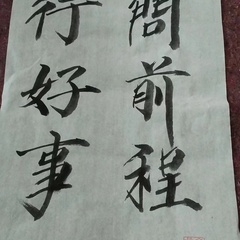 問前程
行好事